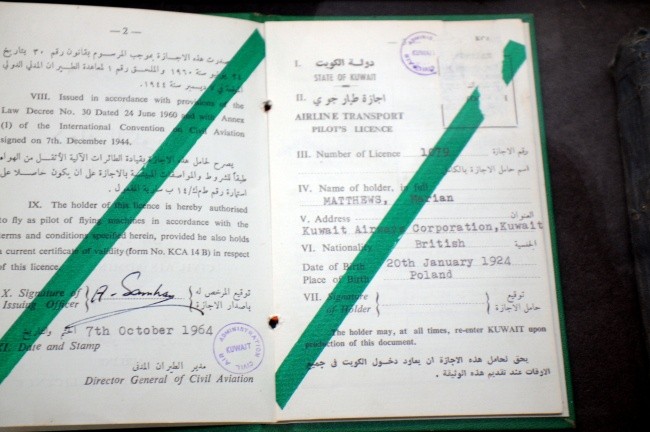 — 2 —
صدرت هذه الاجازة بموجب المرسوم بقانون رقم ٣٠ بتاريخ
سنة ١٩٦٠ والملحق رقم ١ لمعاهدة الطيران المدني الدولي
ديسمبر سنة ١٩٤٤.
VIII. Issued in accordance with provisions of the
Law Decree No. 30 Dated 24 June 1960 and with Annex
(1) of the International Convention on Civil Aviation
signed on 7th. December 1944.
يصرح لحامل هذه الاجازة بقيادة الطائرات الآلية الأثقل من الهواء
طبقاً للشروط والمواصفات المبينة بالاجازة على ان يكون حاصلا على
IX. The holder of this licence is hereby authorised
to fly as pilot of flying machines in accordance with the
terms and conditions specified herein, provided he also holds
a current certificate of validity (form No. KCA 14 B) in respect
of this licence.
X. Signature of
Issuing Officer
توقيع المرخص له
باصدار الاجازة
7th October 1964
XI. Date and Stamp
CIVIL AVIATION ADMINISTRATION
KUWAIT
مدير الطيران المدني
Director General of Civil Aviation
I. دولة الكويت
STATE OF KUWAIT
II. اجازة طيار جوي
AIRLINE TRANSPORT
PILOT'S LICENCE
KUWAIT
III. Number of Licence 1679 رقم الاجازة
اسم حامل الاجازة بالكامل
IV. Name of holder, in full
MATTHEWS, Marian
V. Address العنوان
Kuwait Airways Corporation, Kuwait
VI. Nationality British الجنسية
Date of Birth 20th January 1924
Place of Birth Poland
VII. Signature
of Holder
توقيع
حامل الاجازة
The holder may, at all times, re-enter KUWAIT upon
production of this document.
يحق لحامل هذه الاجازة ان يعاود دخول الكويت في جميع
الاوقات عند تقديم هذه الوثيقة.